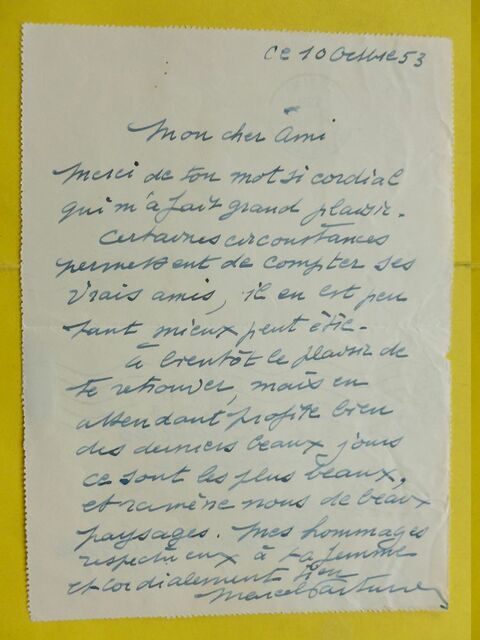 ce 10 Octobre 53
Mon cher Ami
Merci de ton mot si cordial
qui m'a fait grand plaisir.
Certaines circonstances
permettent de compter ses
vrais amis, il en est peu
tant mieux peut être.
à bientôt le plaisir de
te retrouver, mais en
attendant profite bien
des derniers beaux jours
ce sont les plus beaux,
et ramène nous de beaux
paysages. Mes hommages
respectueux à ta femme
et cordialement tien
Marcel